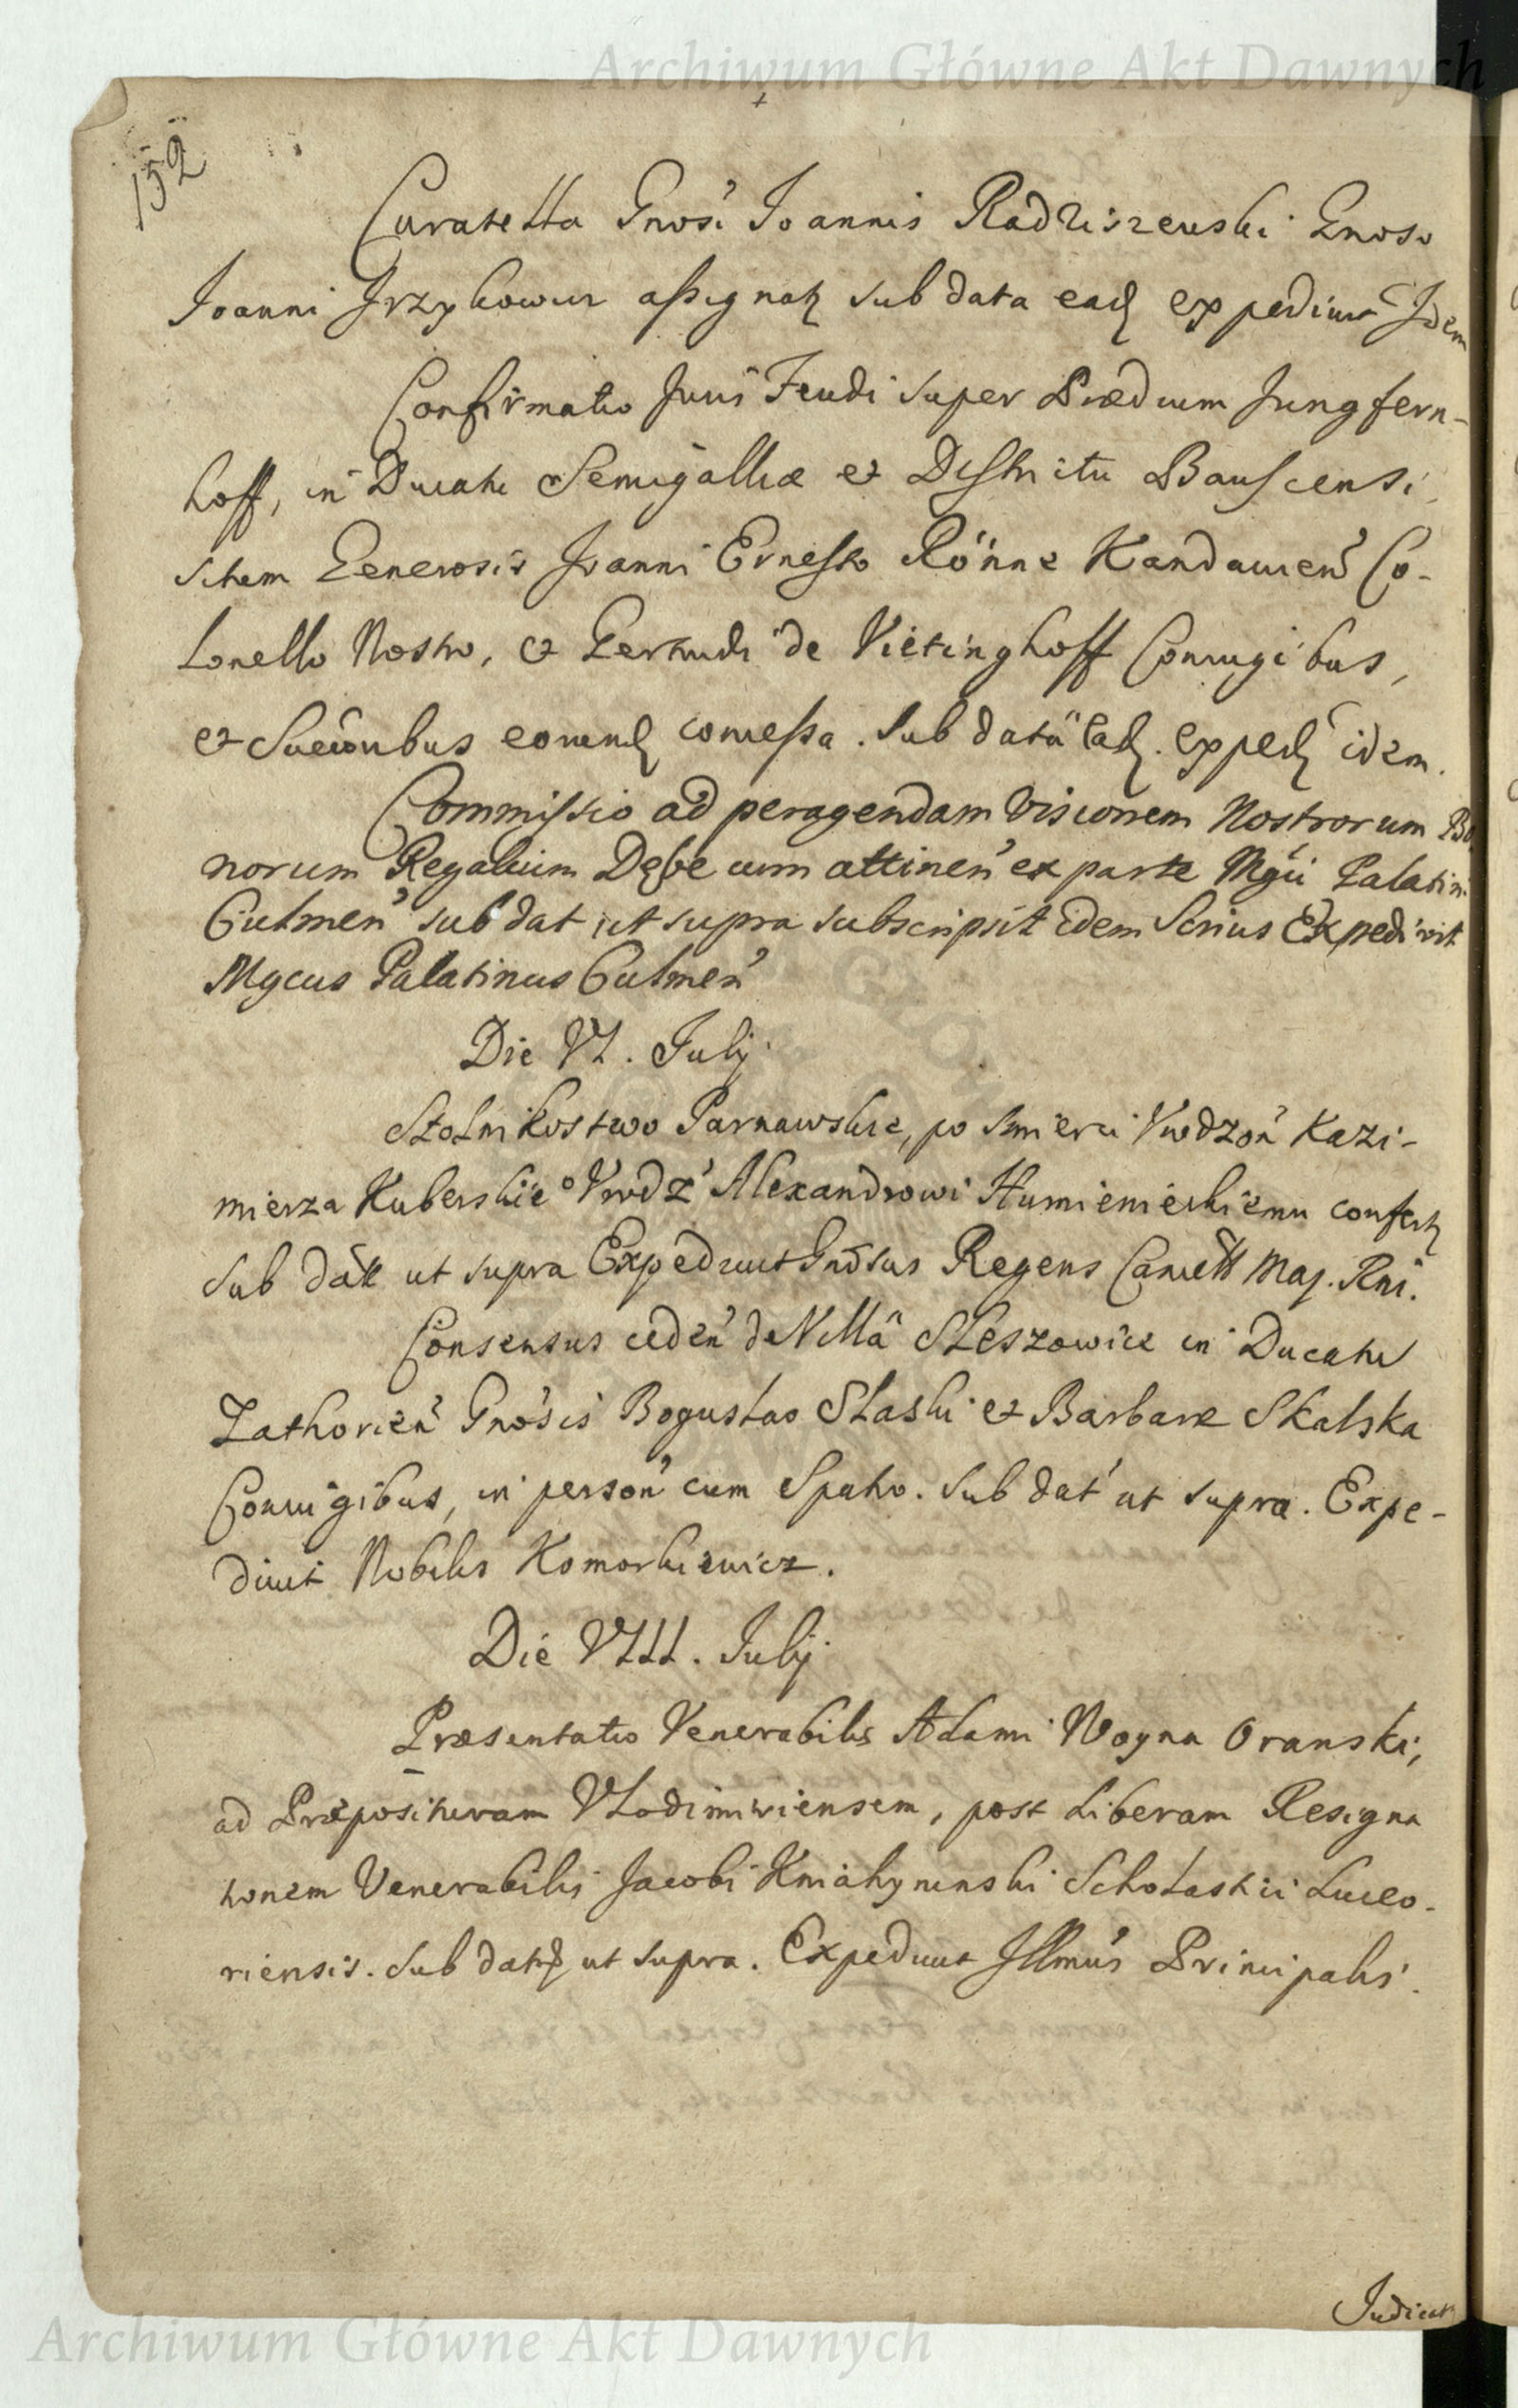 Archiwum Główne Akt Dawnych
152
Curatella Gnosi Joannis Radziszewski Gnoso
Joanni assignatʒ sub data eadʒ expedivit Idem
Confirmatio Juris Feudi super Prædium Jungfern-
hoff, in Ducatu Semigalliæ et Districtu Bauscensi
sitem Generosis Joanni Ernesto Rönne Kandavien̄ Co-
lonello Nostro, et Gertrudi de Vietinghoff Coniugibus,
et Succoribus eorundʒ concessa. Sub datâ eadʒ. expedʒ idem.
Commissio ad peragendam Visionem Nostrorum Bo
norum Regalium Dębe cum attinen̄ ex parte Mgci Palatini
Culmen̄ sub dat ut supra subscripsit idem Srius Expedivit
Mgcus Palatinus Culmen̄
Die VI. Julij
Stolnikostwo Parnawskie, po smierci Vrodzon̄ Kazi-
mierza Kuberskieº Vrodz̄ Alexandrowi Humienieckiemu confertʒ
Sub datt ut supra Expedivit Gnosus Regens Cancell Maj. Rni.
Consensus ceden̄ de Villâ Sleszowice in Ducatu
Zathorien̄ Gnosis Boguslao Slaski et Barbaræ Skalska
Coniugibus, in person̄ cum Spatio. Sub dat ut supra. Expe-
divit Nobilis Komorkiewicz.
Die VIII. Julij
Præsentatio Venerabilis Adami Woyna Oranski,
ad Præposituram Vlodimiriensem, post Liberam Resigna
tionem Venerabilis Jacobi Kniahyninski Scholastici Luceo-
riensis. Sub datʒ ut supra. Expedivit Illmus Principalis.
Judicat
Archiwum Główne Akt Dawnych